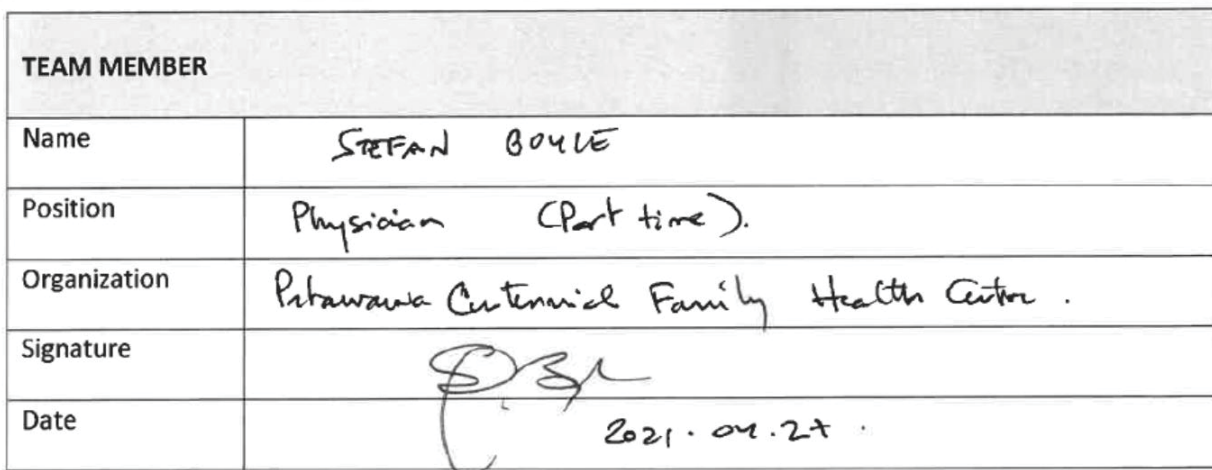 TEAM MEMBER
Name STEFAN BOYLE
Position Physician (Part time).
Organization Petawawa Centennial Family Health Centre.
Signature
Date 2021.04.27.